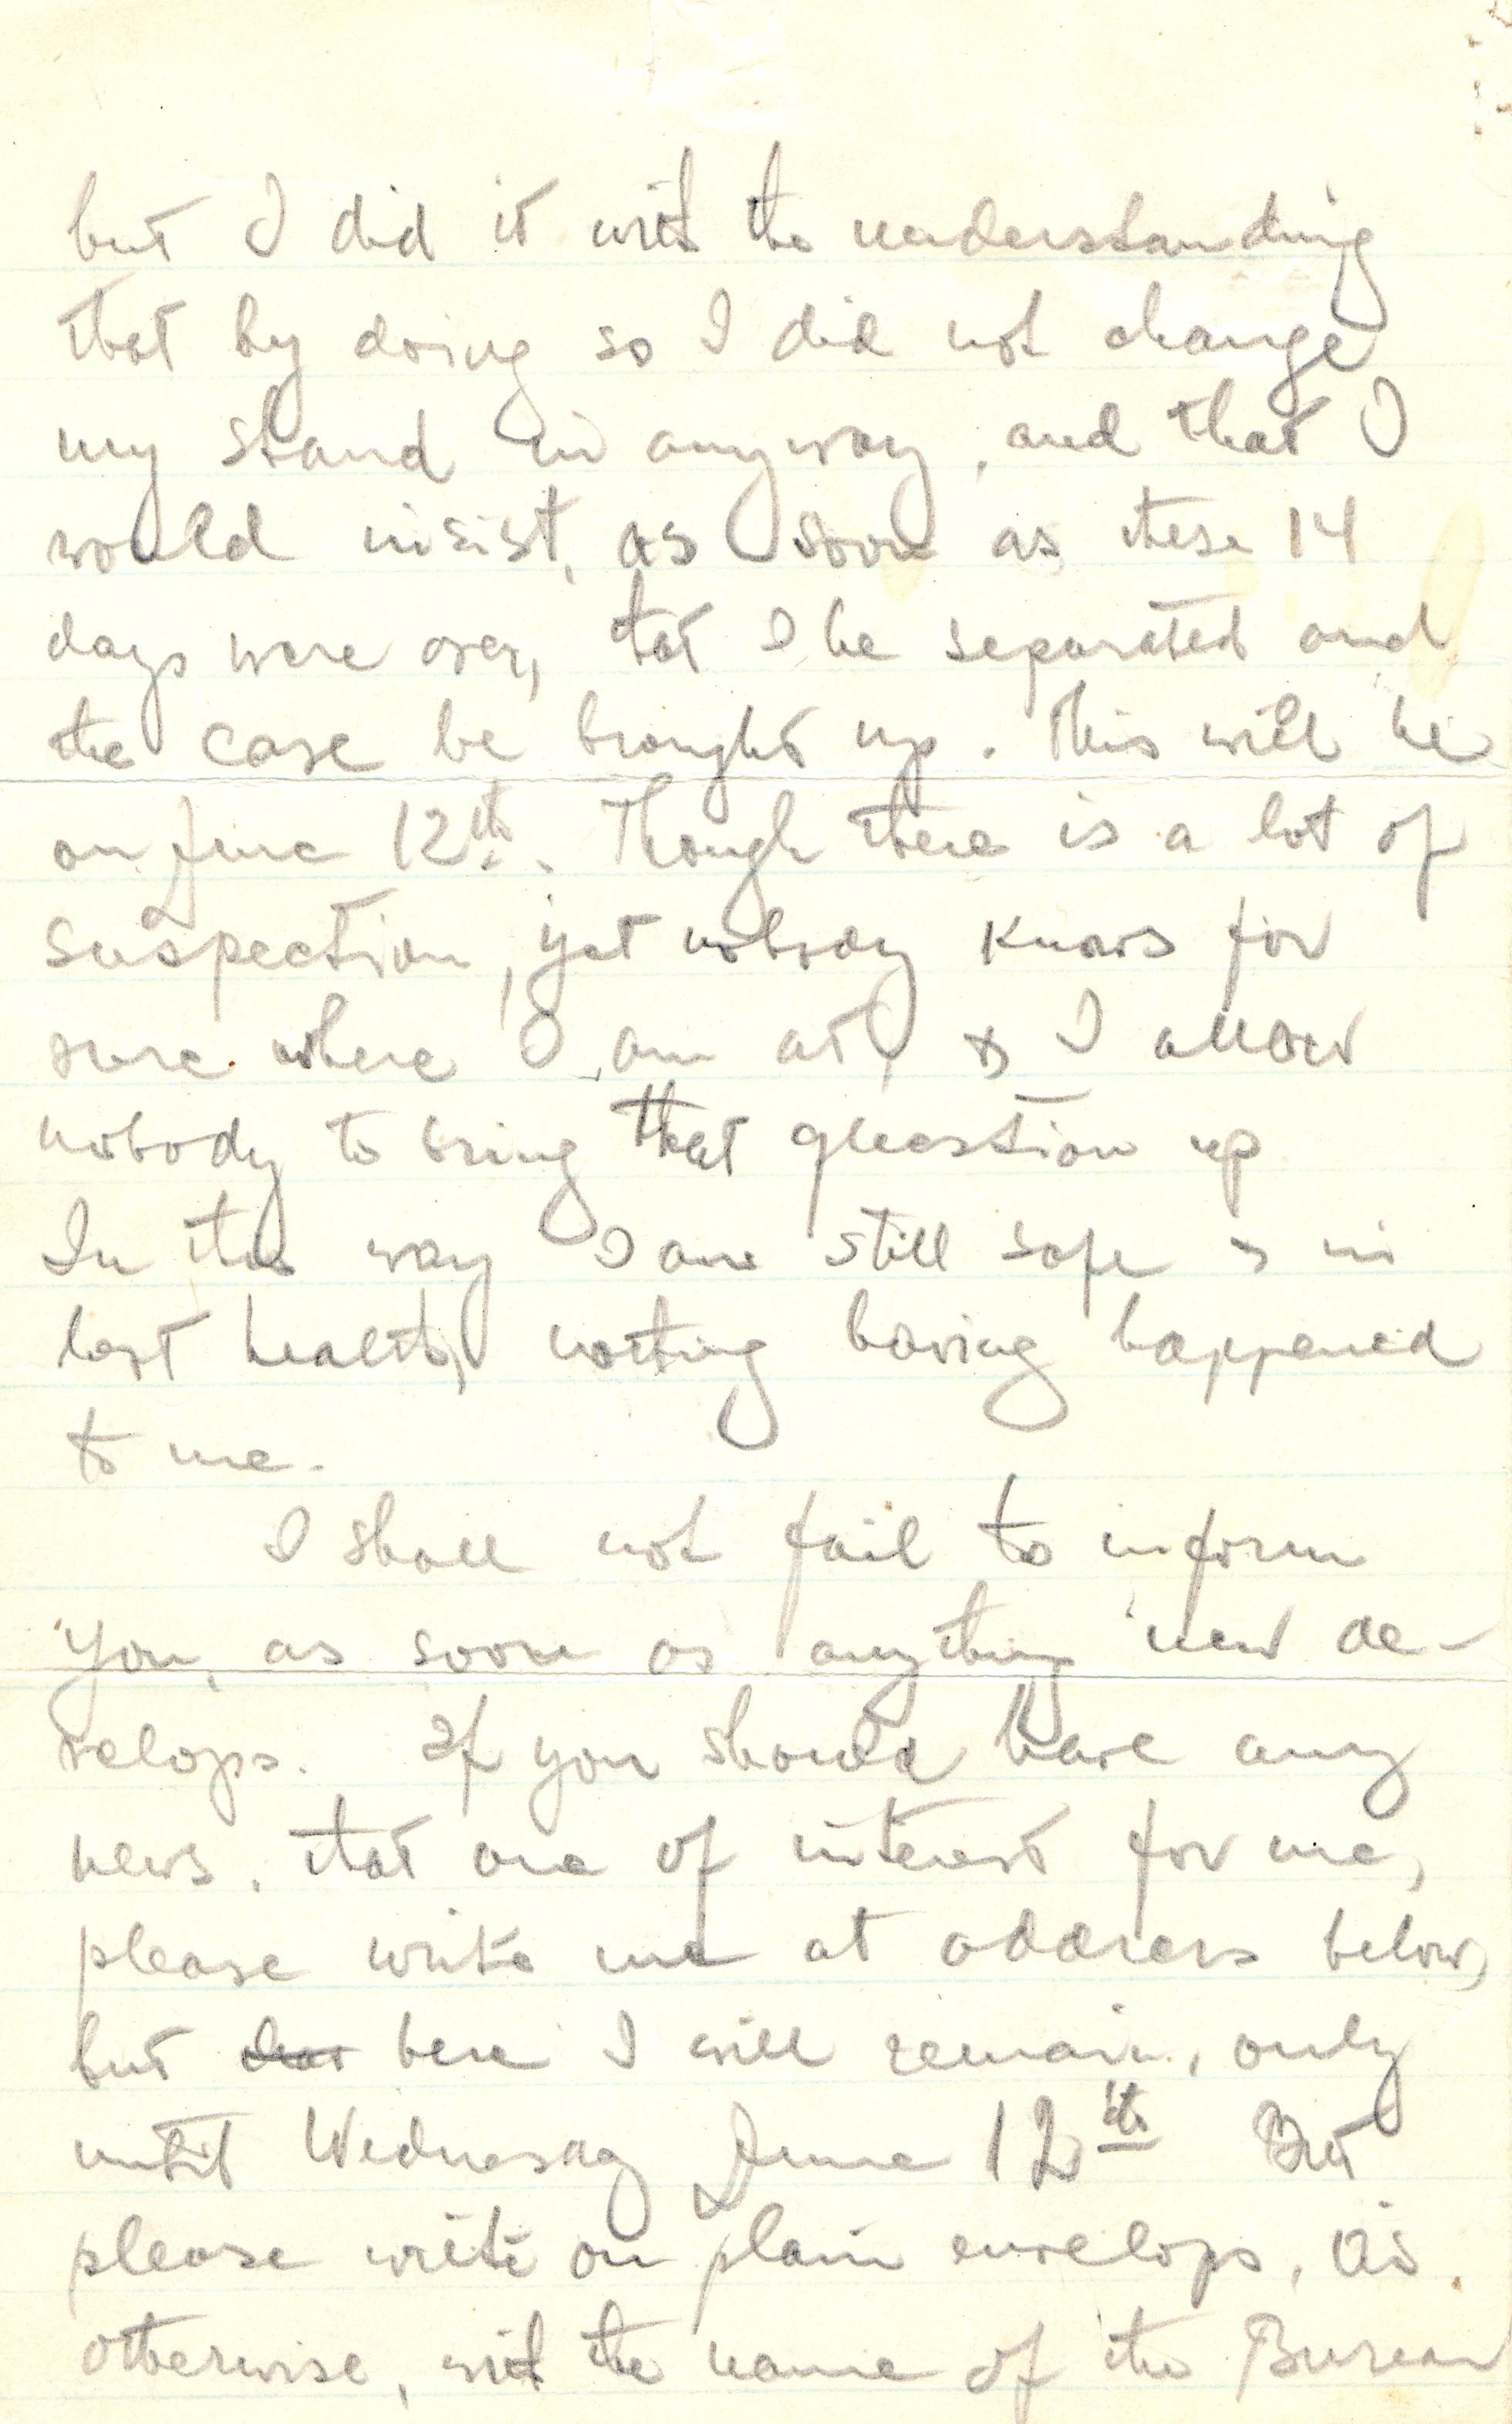 but I did it with the understanding
that by doing so I did not change
my stand in anyway, and that I
would insist, as soon as these 14
days were over, that I be separated and
the case be brought up. This will be
on June 12th. Though there is a lot of
suspection, yet nobody knows for
sure where I am at, & I allow
nobody to bring that question up
In this way I am still safe & in
best health, nothing having happened
to me.
I shall not fail to inform
you, as soon as anything new de-
velops. If you should have any
news, that are of interest for me,
please write me at address below,
but here I will remain, only
until Wednesday June 12th But
please write on plain envelops, as
otherwise, with the name of the Bureau